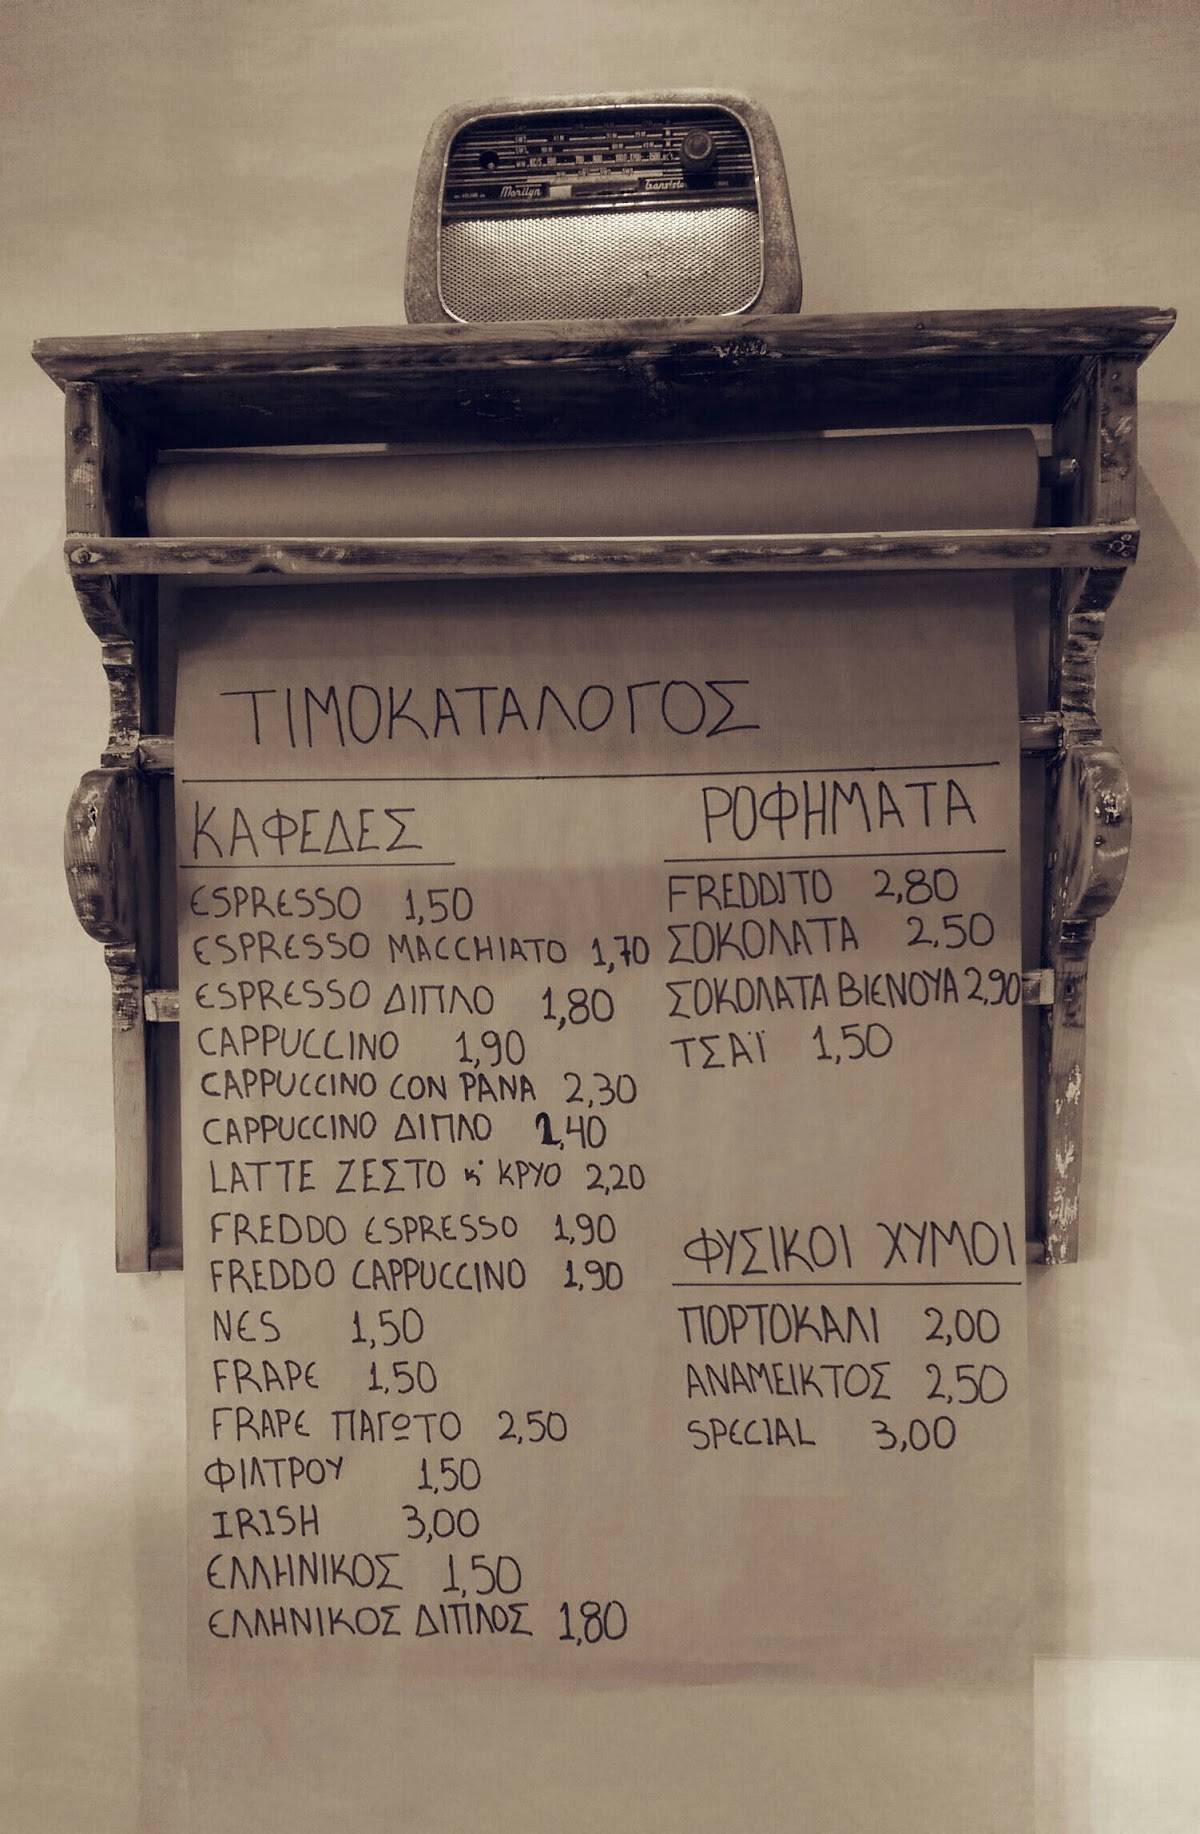 Marilyn
ΤΙΜΟΚΑΤΑΛΟΓΟΣ
ΚΑΦΕΔΕΣ
ESPRESSO 1,50
ESPRESSO MACCHIATO 1,70
ESPRESSO ΔΙΠΛΟ 1,80
CAPPUCCINO 1,90
CAPPUCCINO CON PANA 2,30
CAPPUCCINO ΔΙΠΛΟ 2,40
LATTE ΖΕΣΤΟ κ' ΚΡΥΟ 2,20
FREDDO ESPRESSO 1,90
FREDDO CAPPUCCINO 1,90
NES 1,50
FRAPE 1,50
FRAPE ΠΑΓΩΤΟ 2,50
ΦΙΛΤΡΟΥ 1,50
IRISH 3,00
ΕΛΛΗΝΙΚΟΣ 1,50
ΕΛΛΗΝΙΚΟΣ ΔΙΠΛΟΣ 1,80
ΡΟΦΗΜΑΤΑ
FREDDITO 2,80
ΣΟΚΟΛΑΤΑ 2.50
ΣΟΚΟΛΑΤΑ ΒΙΕΝΟΥΑ 2,90
ΤΣΑΪ 1,50
ΦΥΣΙΚΟΙ ΧΥΜΟΙ
ΠΟΡΤΟΚΑΛΙ 2,00
ΑΝΑΜΕΙΚΤΟΣ 2,50
SPECIAL 3,00